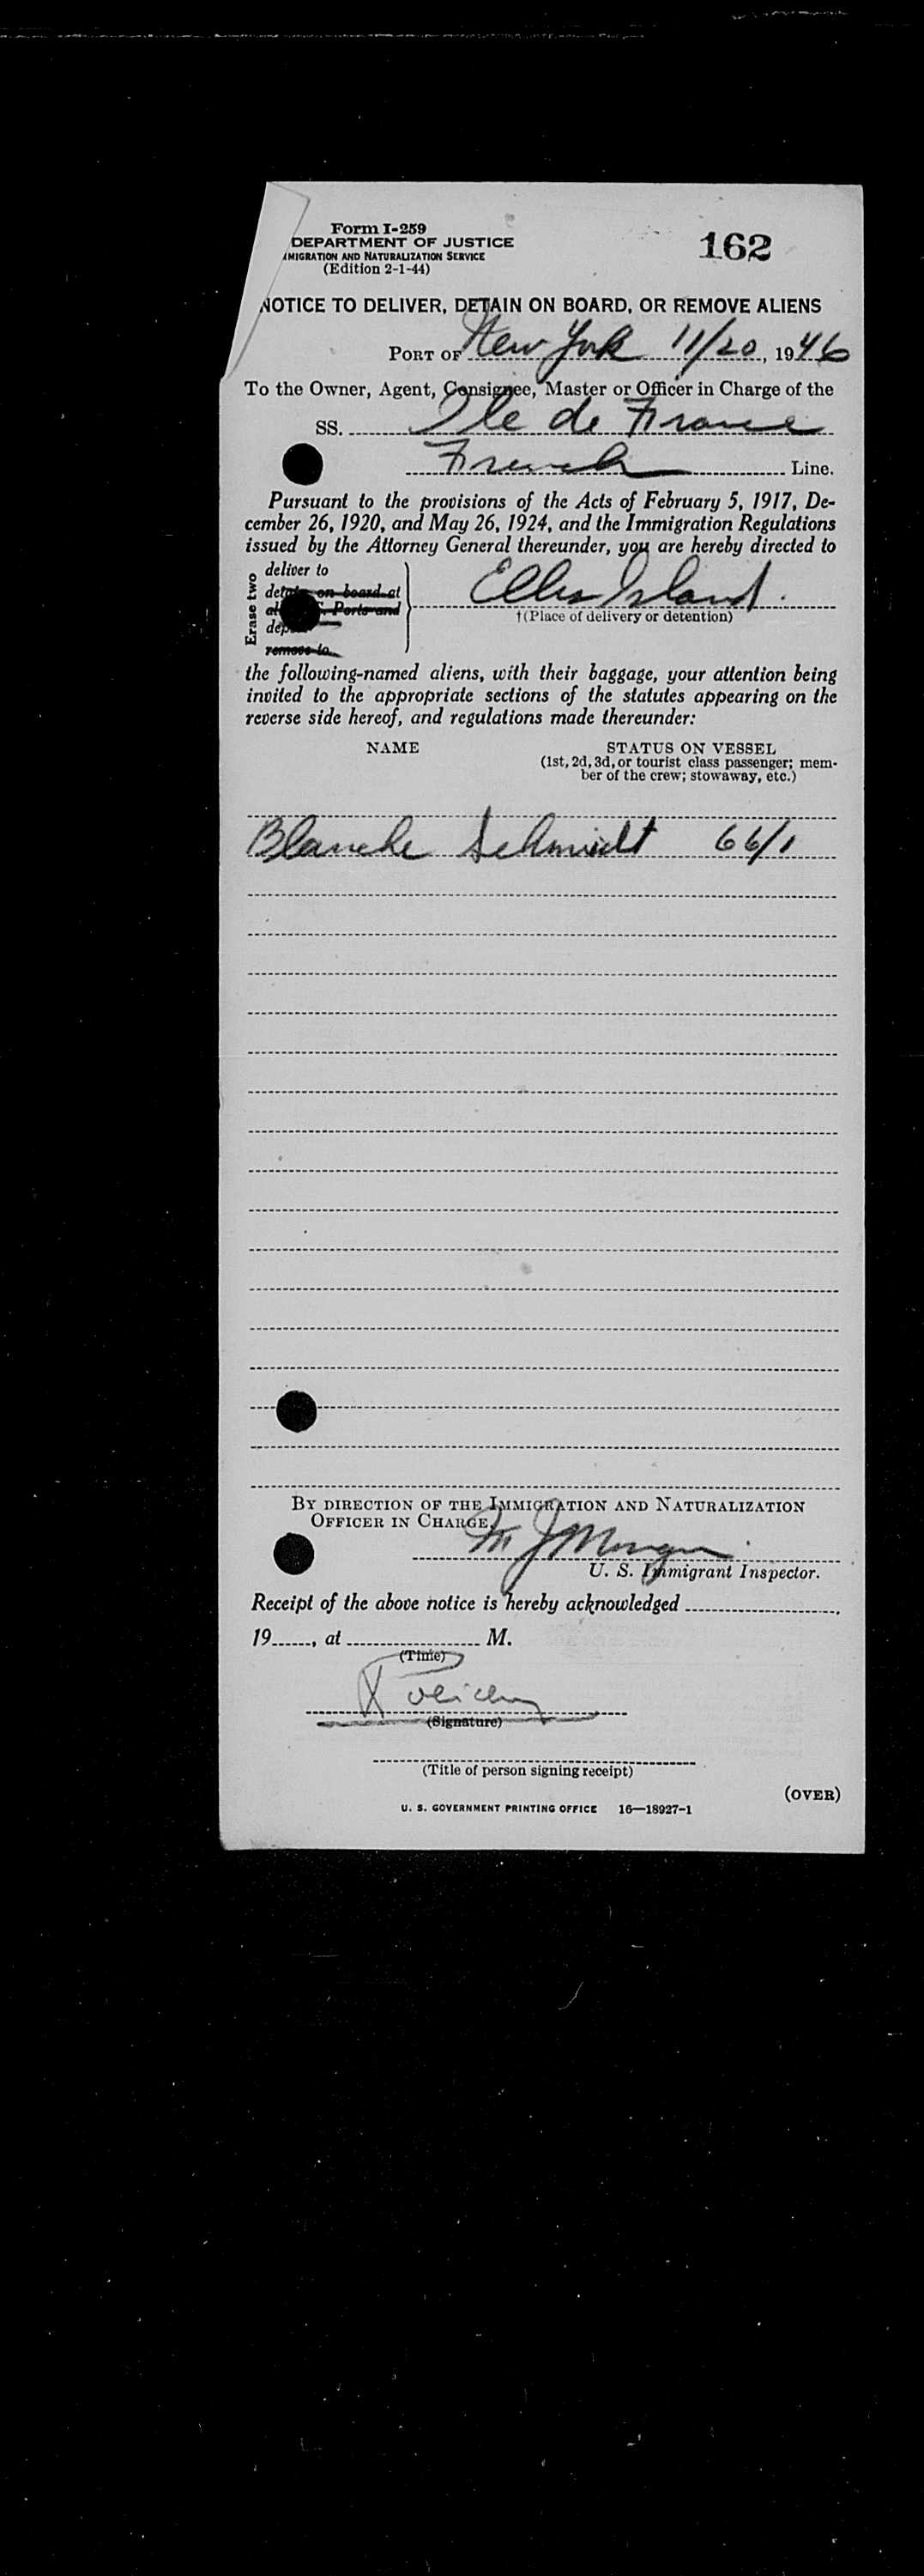 Form I-259
DEPARTMENT OF JUSTICE
IMMIGRATION AND NATURALIZATION SERVICE
(Edition 2-1-44)
162
NOTICE TO DELIVER, DETAIN ON BOARD, OR REMOVE ALIENS
PORT OF New York 11/20, 1946
To the Owner, Agent, Consignee, Master or Officer in Charge of the
SS. Ile de France
French Line.
Pursuant to the provisions of the Acts of February 5, 1917, De-
cember 26, 1920, and May 26, 1924, and the Immigration Regulations
issued by the Attorney General thereunder, you are hereby directed to
Erase two
deliver to
on board at
Ports and
remove to
Ellis Island.
†(Place of delivery or detention)
the following-named aliens, with their baggage, your attention being
invited to the appropriate sections of the statutes appearing on the
reverse side hereof, and regulations made thereunder:
NAME STATUS ON VESSEL
(1st, 2d, 3d, or tourist class passenger; mem-
ber of the crew; stowaway, etc.)
Blanche Schmidt 66/1
BY DIRECTION OF THE IMMIGRATION AND NATURALIZATION
OFFICER IN CHARGE,
M J Morgan
U. S. Immigrant Inspector.
Receipt of the above notice is hereby acknowledged
19, at M.
(Time)
(Signature)
(Title of person signing receipt)
(OVER)
U. S. GOVERNMENT PRINTING OFFICE 16—18927-1